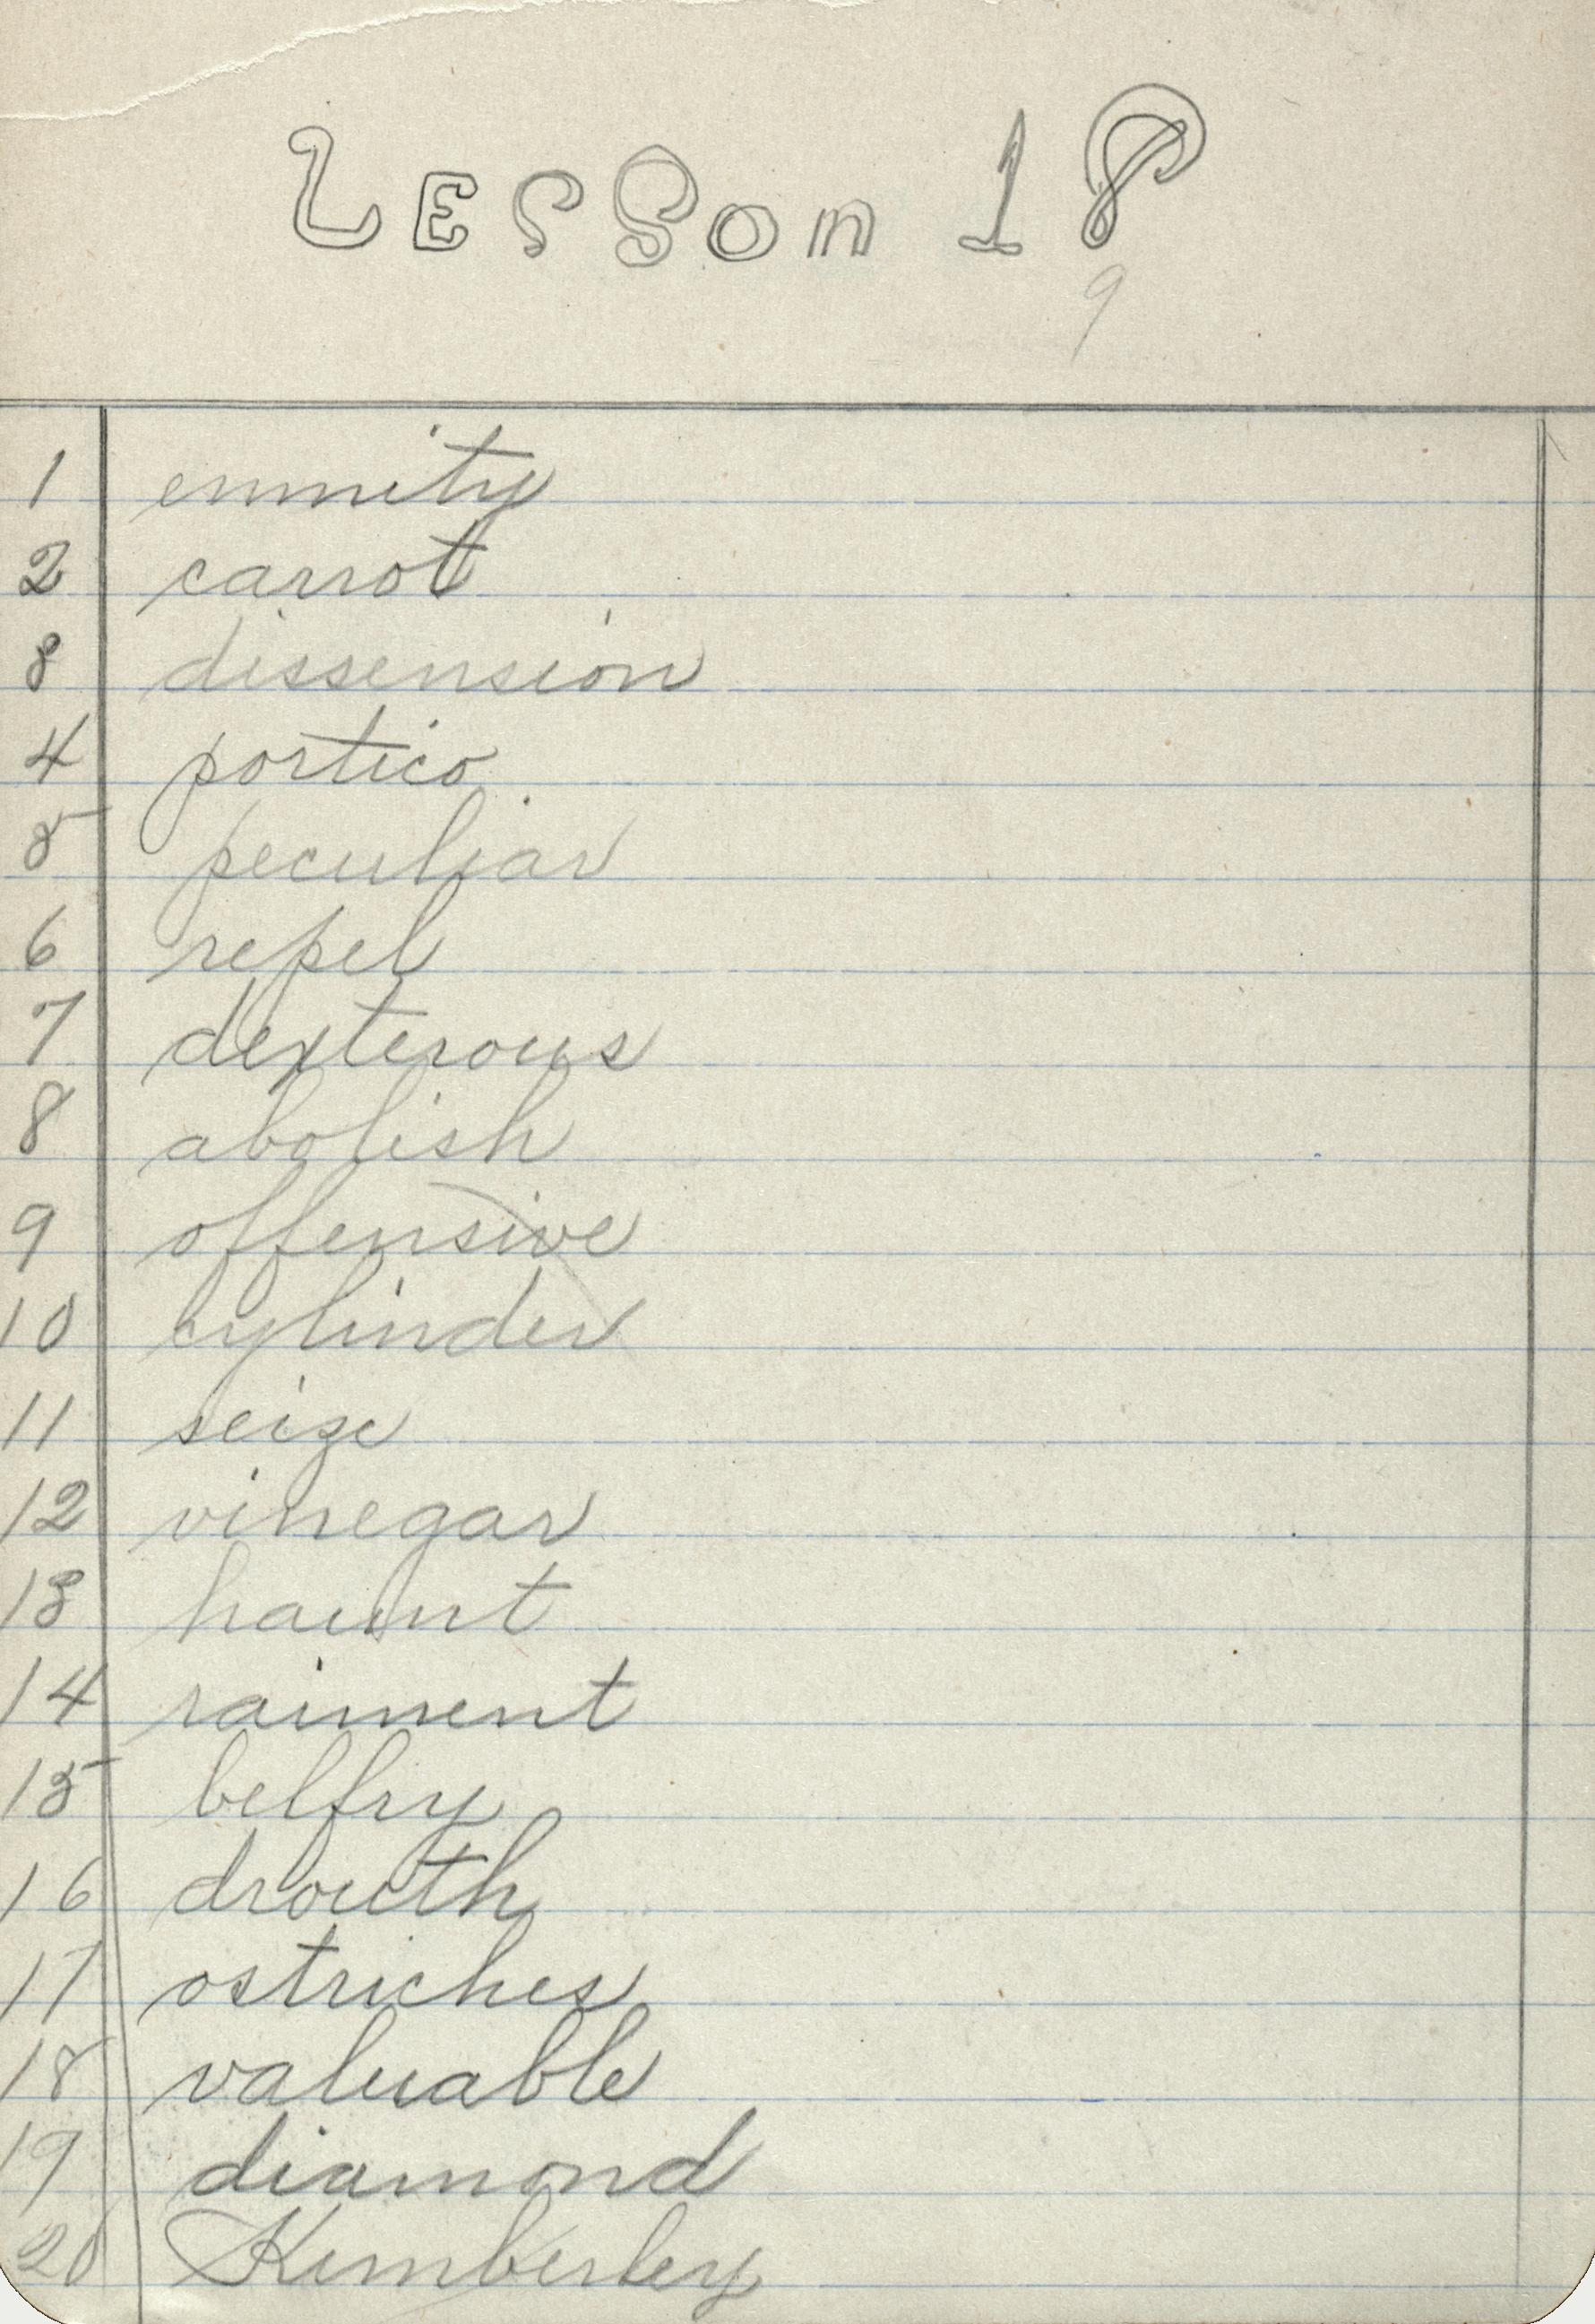 Lesson 18
9
1 enmity
2 carrot
3 dissension
4 portico
5 peculiar
6 repel
7 dexterous
8 abolish
9 offensive
10 cylinder
11 seize
12 vinegar
13 haunt
14 raiment
15 belfry
16 drouth
17 ostriches
18 valuable
19 diamond
20 Kimberley